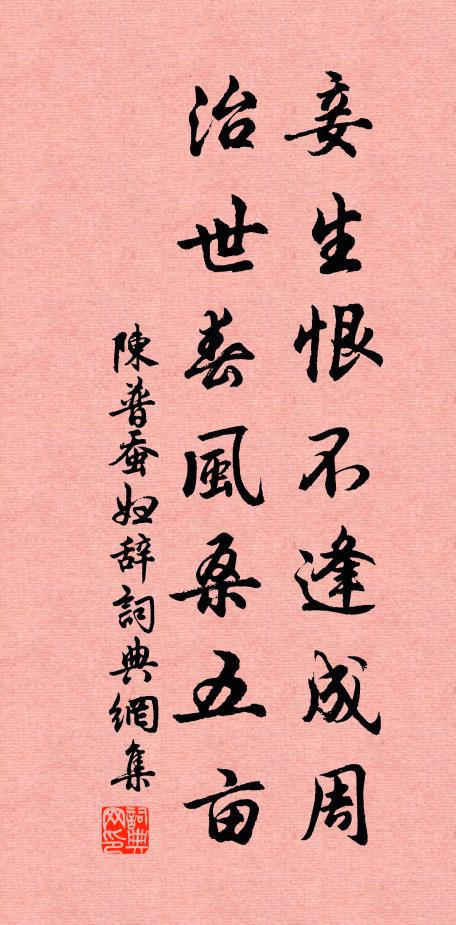 妾生恨不逢成周
治世春風桑五亩
陳普蚕妇辞詞典網集
詞典网印